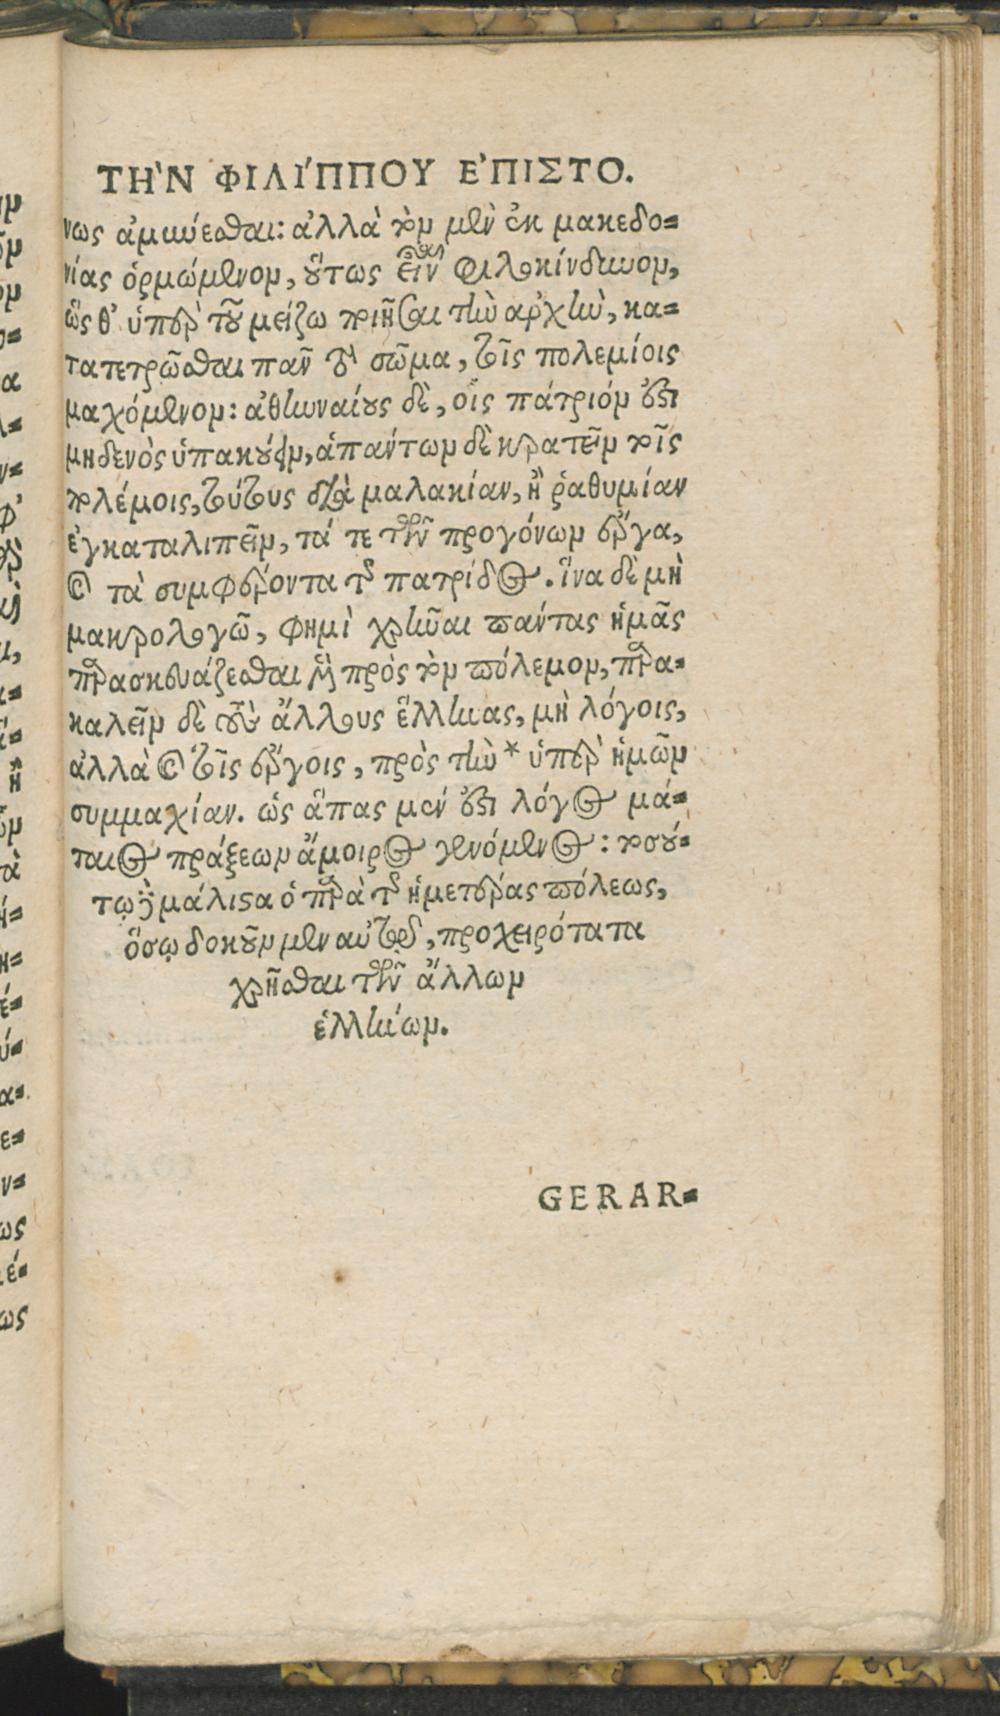 ΤῊΝ ΦΙΛΊΠΠΟΥ ἘΠΙΣΤΟ.
νως ἀμύνεσθαι: ἀλλὰ τὸν μὲν ἐκ μακεδο-
νίας ὁρμώμενον, οὕτως εἶναι φιλοκίνδυνον,
ὥς θ' ὑπὲρ τοῦ μείζω ποιῆσαι τὴν ἀρχὴν, κα-
τατετρῶσθαι πᾶν τὸ σῶμα, τοῖς πολεμίοις
μαχόμενον: ἀθηναίους δὲ, οἷς πάτριόν ἐστι
μηδενὸς ὑπακούειν, ἁπάντων δὲ κρατεῖν τοῖς
πολέμοις, τούτους διὰ μαλακίαν, ἢ ῥαθυμίαν
ἐγκαταλιπεῖν, τά τε τῶν προγόνων ἔργα,
καὶ τὰ συμφέροντα τῆς πατρίδος. ἵνα δὲ μὴ
μακρολογῶ, φημὶ χρῆναι πάντας ἡμᾶς
παρασκευάζεσθαι μὲν πρὸς τὸν πόλεμον, παρα-
καλεῖν δὲ τοὺς ἄλλους ἕλληνας, μὴ λόγοις,
ἀλλὰ καὶ τοῖς ἔργοις, πρὸς τὴν * ὑπὲρ ἡμῶν
συμμαχίαν. ὡς ἅπας μέν ἐστι λόγος μά-
ταιος πράξεων ἄμοιρος γενόμενος: τοσού-
τῳ δὲ μάλιστα ὁ παρὰ τῆς ἡμετέρας πόλεως,
ὅσῳ δοκοῦμεν αὐτῷ, προχειρότατα
χρῆσθαι τῶν ἄλλων
ἑλλήνων.
GERAR-